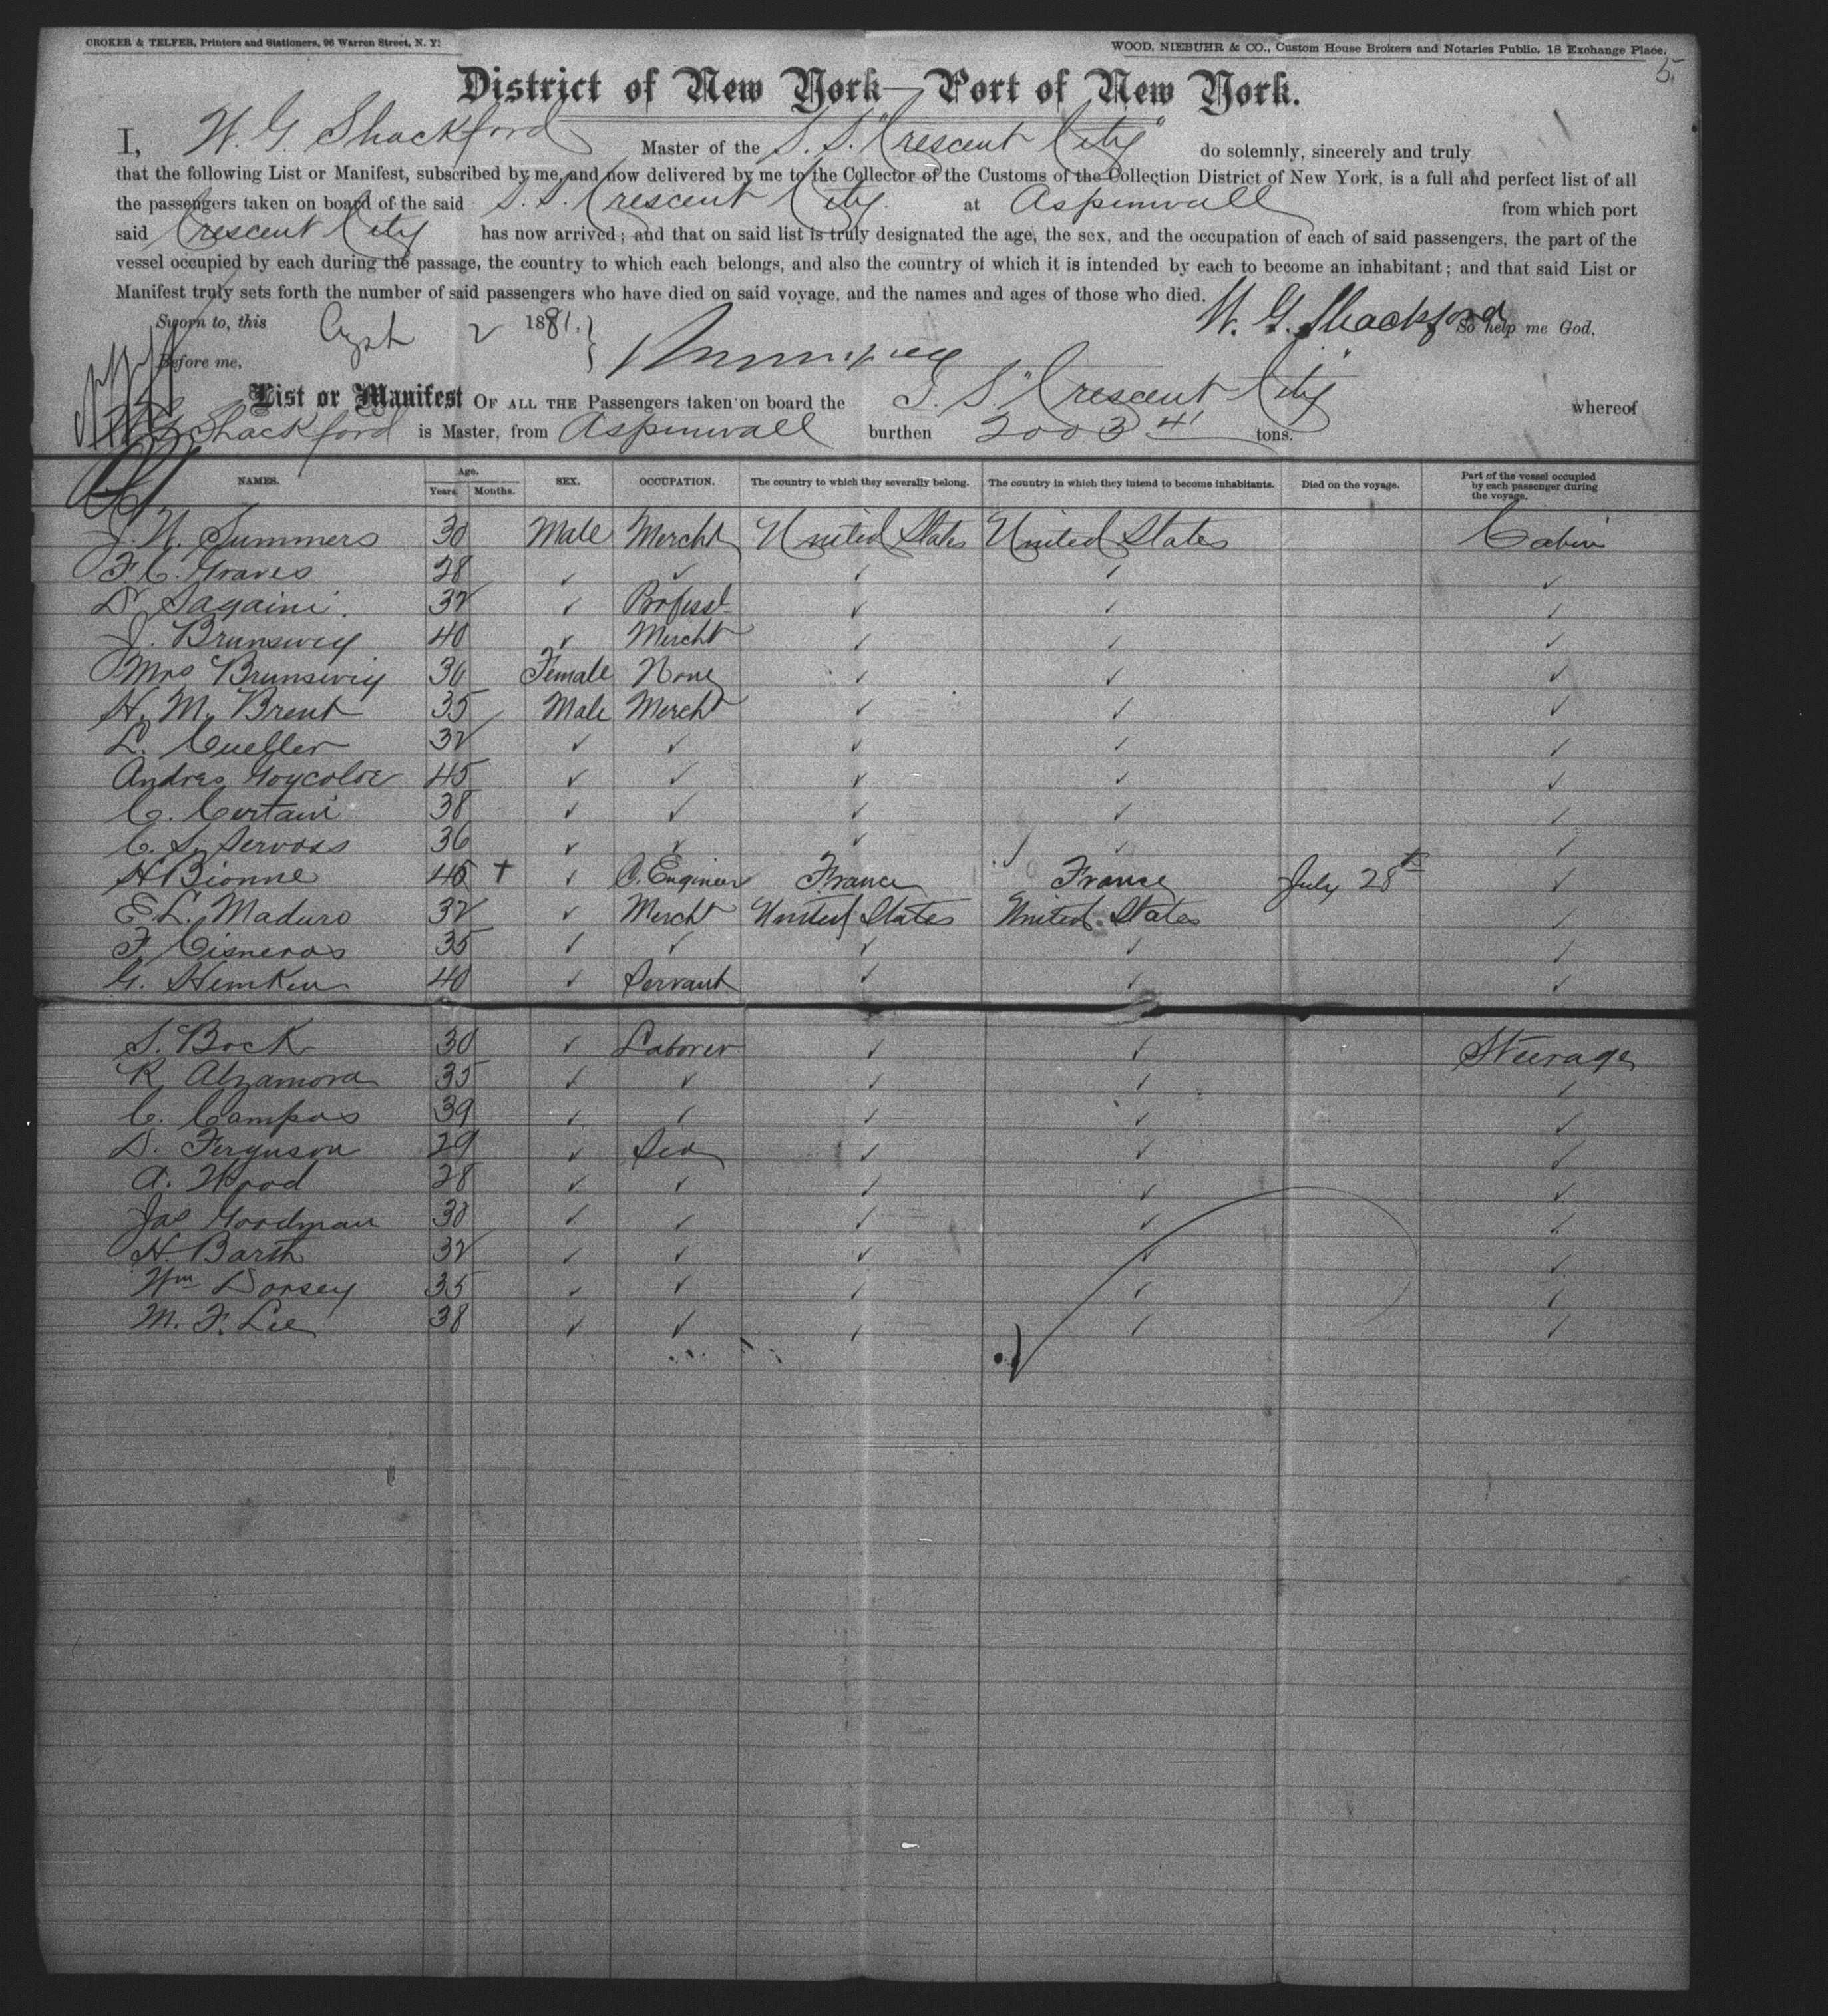 CROKER & TELFER, Printers and Stationers, 96 Warren Street, N. Y.
WOOD, NIEBUHR & CO., Custom House Brokers and Notaries Public. 18 Exchange Place.
5
District of New York—Port of New York.
I, W. G. Shackford Master of the S. S. "Crescent City" do solemnly, sincerely and truly
that the following List or Manifest, subscribed by me, and now delivered by me to the Collector of the Customs of the Collection District of New York, is a full and perfect list of all
the passengers taken on board of the said S. S. Crescent City. at Aspinwall from which port
said Crescent City has now arrived; and that on said list is truly designated the age, the sex, and the occupation of each of said passengers, the part of the
vessel occupied by each during the passage, the country to which each belongs, and also the country of which it is intended by each to become an inhabitant; and that said List or
Manifest truly sets forth the number of said passengers who have died on said voyage, and the names and ages of those who died.
Sworn to, this Augst 2 1881. W. G. Shackford So help me God,
Before me,
List or Manifest OF ALL THE Passengers taken on board the S. S. "Crescent City" whereof
W G Shackford is Master, from Aspinwall burthen 2003 41 tons.
NAMES. Age. Years. Months. SEX. OCCUPATION. The country to which they severally belong. The country in which they intend to become inhabitants. Died on the voyage. Part of the vessel occupied by each passenger during the voyage.
J. W. Summers 30 Male Mercht United States United States Cabin
F. C. Graves 28 ✓ ✓ ✓ ✓ ✓
D. Sagaini. 32 ✓ Professl ✓ ✓ ✓
J. Brunswig 40 ✓ Mercht ✓ ✓ ✓
Mrs Brunswig 30 Female None ✓ ✓ ✓
H. M. Brent 35 Male Mercht ✓ ✓ ✓
L. Cueller 32 ✓ ✓ ✓ ✓ ✓
Andres Goycoloe 45 ✓ ✓ ✓ ✓ ✓
C. Certain 38 ✓ ✓ ✓ ✓ ✓
C. S. Servoss 36 ✓ ✓ ✓ ✓ ✓
H Bionne 45 + ✓ C. Engineer France France July 28th ✓
E. L. Maduro 32 ✓ Mercht United States United States ✓
F. Cisneros 35 ✓ ✓ ✓ ✓ ✓
G. Hemken 40 ✓ Servant ✓ ✓ ✓
S. Bock 30 ✓ Laborer ✓ ✓ Steerage
R. Alzamora 35 ✓ ✓ ✓ ✓ ✓
C. Campos 39 ✓ ✓ ✓ ✓ ✓
D. Ferguson 29 ✓ Sea ✓ ✓ ✓
A. Wood 28 ✓ ✓ ✓ ✓ ✓
Jas Goodman 30 ✓ ✓ ✓ ✓ ✓
H. Barth 32 ✓ ✓ ✓ ✓ ✓
Wm Dorsey 35 ✓ ✓ ✓ ✓ ✓
M. F. Lee 38 ✓ ✓ ✓ ✓ ✓